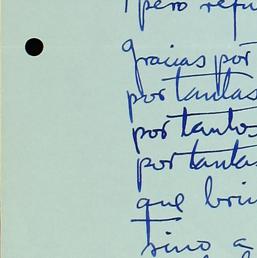 pero refu
gracias por
por tantas
por tantos
por tantas
que brin
sino a